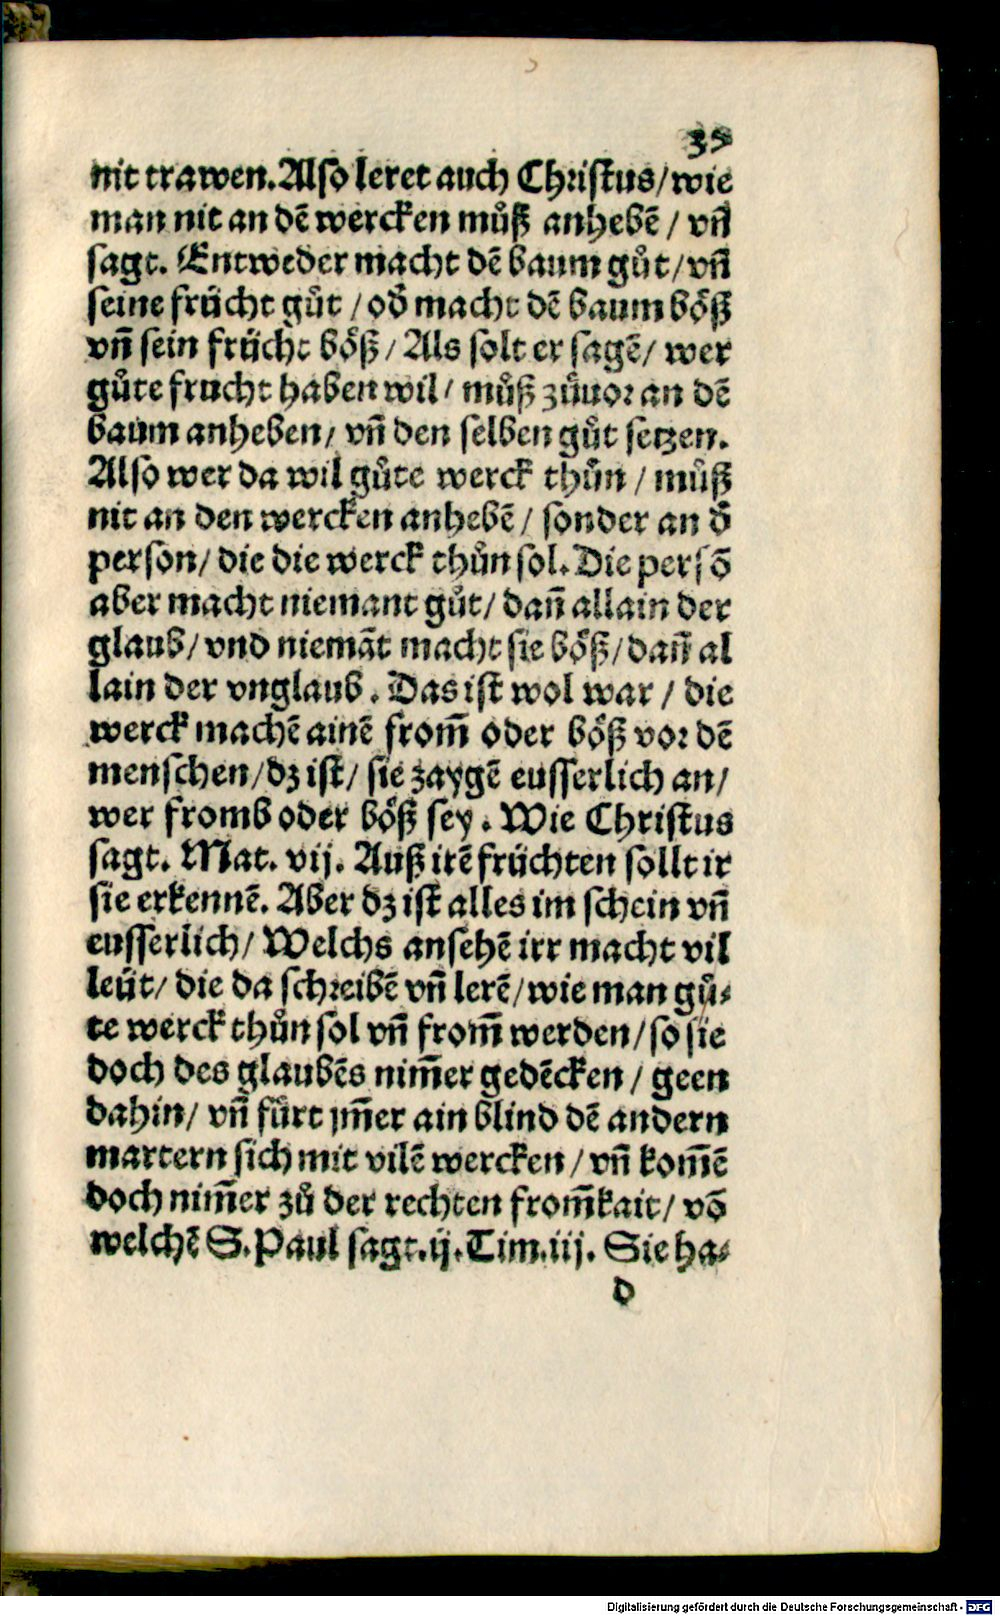 35
nit trawen. Also leret auch Christus/ wie
man nit an dē wercken můß anhebē / vn̄
sagt. Entweder macht dē baum gůt/ vn̄
seine frücht gůt / od̄ macht dē baum böß
vn̄ sein frücht böß/ Als solt er sagē/ wer
gůte frucht haben wil/ můß zůuor an dē
baum anheben/ vn̄ den selben gůt setzen.
Also wer da wil gůte werck thůn / můß
nit an den wercken anhebē / sonder an d̄
person/ die die werck thůn sol. Die persō
aber macht niemant gůt/ dan̄ allain der
glaub/ vnd niemāt macht sie böß/ dan̄ al
lain der vnglaub. Das ist wol war / die
werck machē ainē from̄ oder böß vor dē
menschen/ dz ist/ sie zaygē eusserlich an/
wer fromb oder böß sey. Wie Christus
sagt. Mat. vij. Auß irē früchten sollt ir
sie erkennē. Aber dz ist alles im schein vn̄
eusserlich/ Welchs ansehē irr macht vil
leüt/ die da schreibē vn̄ lerē/ wie man gů⸗
te werck thůn sol vn̄ from̄ werden/ so sie
doch des glaubēs nim̄er gedēcken / geen
dahin/ vn̄ fürt jm̄er ain blind dē andern
martern sich mit vilē wercken / vn̄ kom̄ē
doch nim̄er zů der rechten from̄kait/ vō
welchē S. Paul sagt. ij. Tim. iij. Sie ha⸗
d
Digitalisierung gefördert durch die Deutsche Forschungsgemeinschaft - DFG